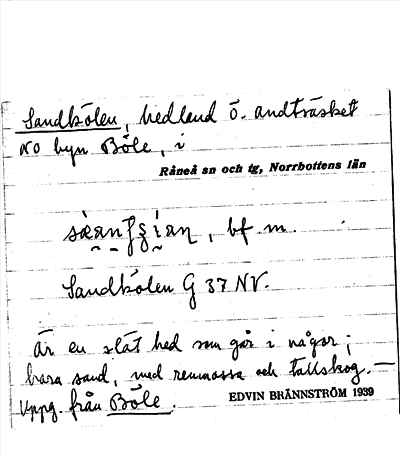 Sandkölen, hedland ö. andträsket
NO byn Böle, i
Råneå sn och tg, Norrbottens län
, bf. m.
Sandkölen G 37 NV.
Är en slät hed som går i vågor;
bara sand, med renmossa och tallskog. —
Uppg. från Böle.
EDVIN BRÄNNSTRÖM 1939